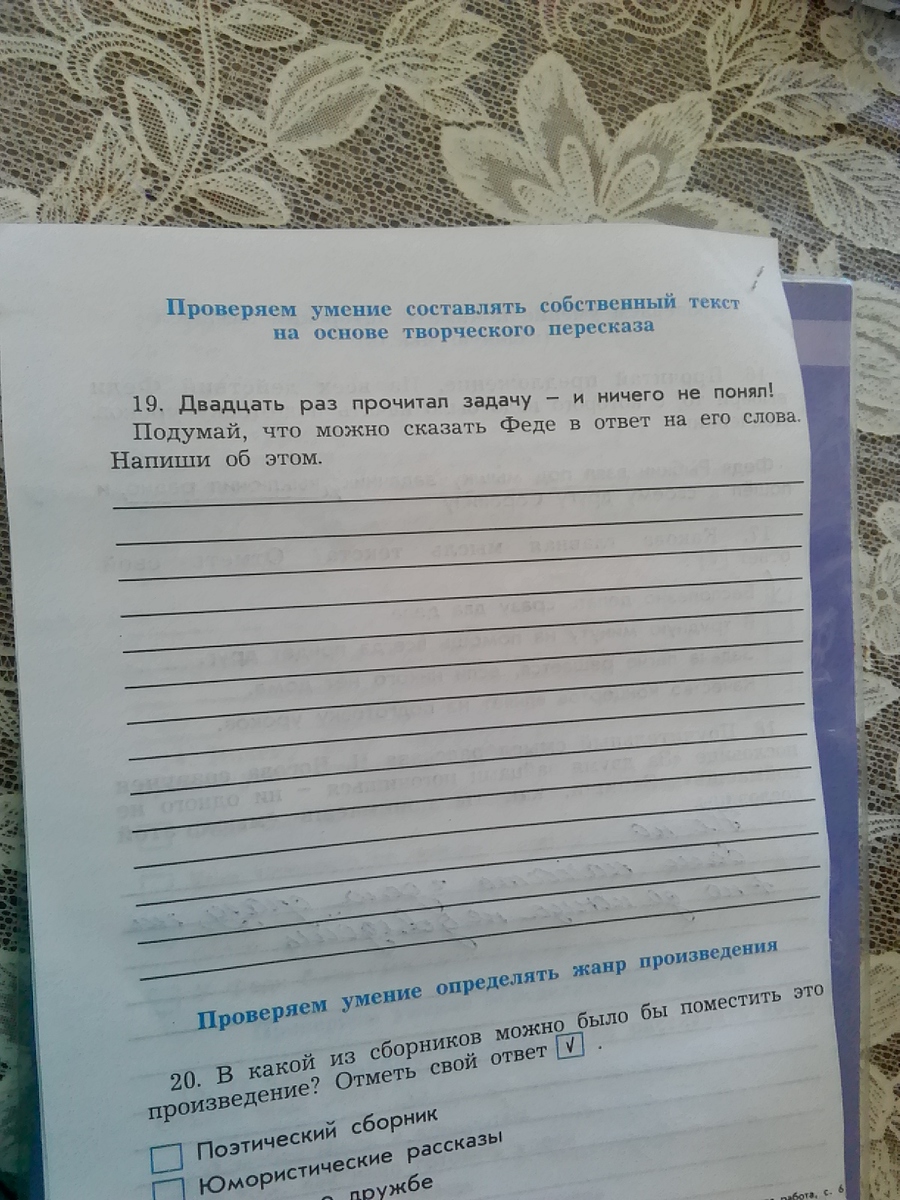 Проверяем умение составлять собственный текст
на основе творческого пересказа
19. Двадцать раз прочитал задачу – и ничего не понял!
Подумай, что можно сказать Феде в ответ на его слова.
Напиши об этом.
Проверяем умение определять жанр произведения
20. В какой из сборников можно было бы поместить это
произведение? Отметь свой ответ √ .
Поэтический сборник
Юмористические рассказы
о дружбе
работа, с. 6